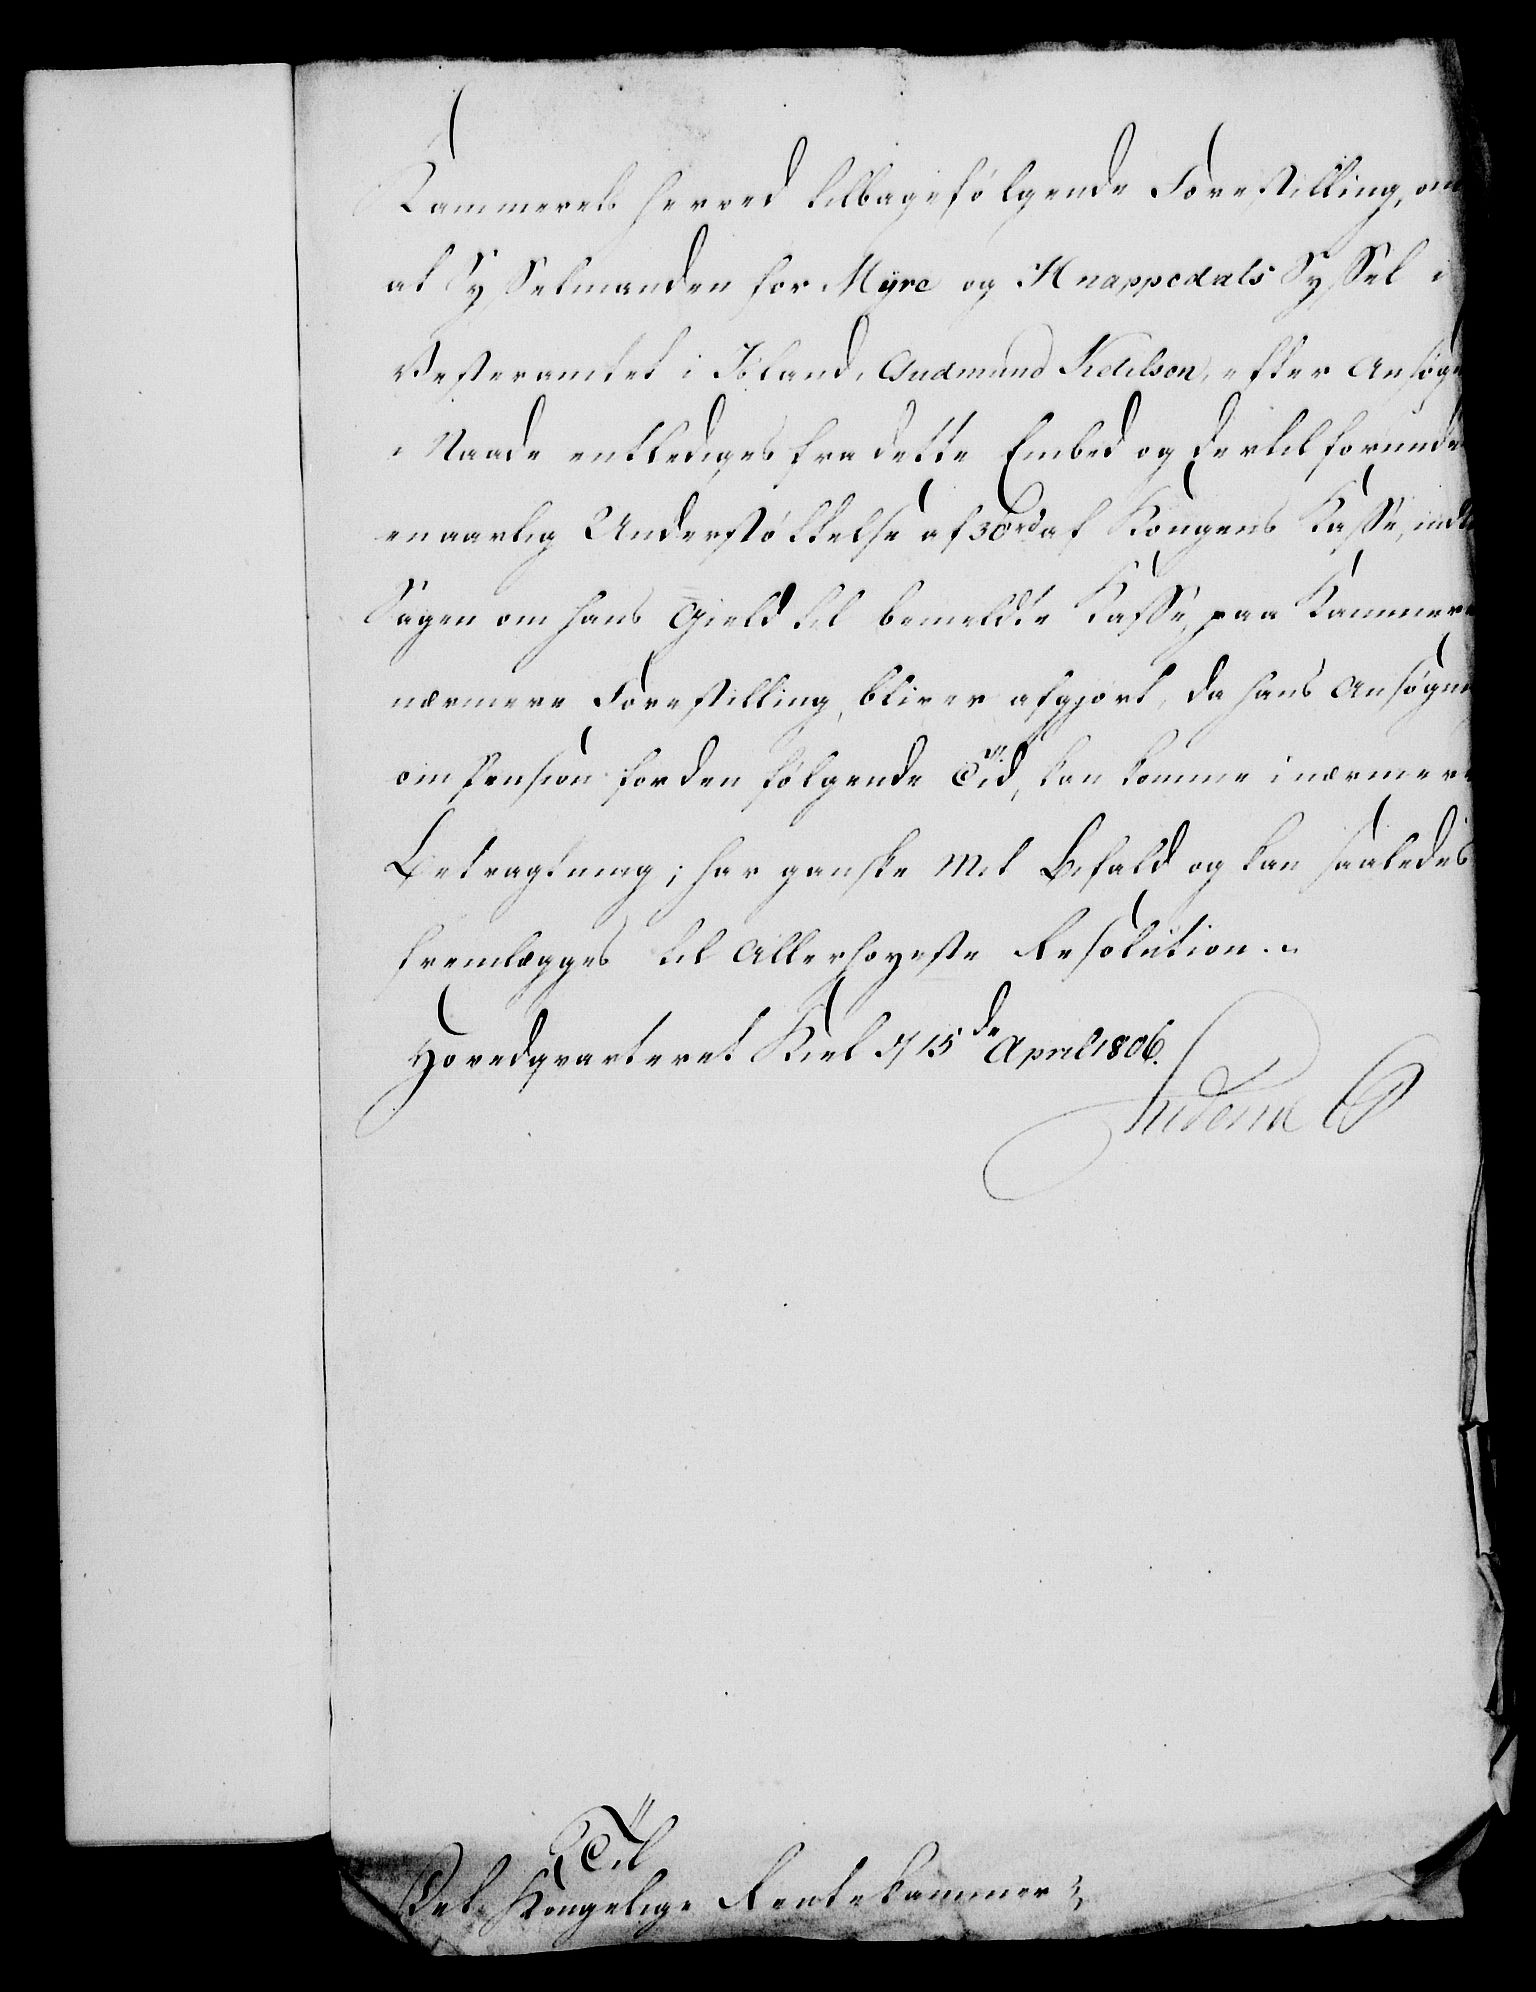 Kammerets herved tilbagefølgende Forestilling, om
at Sysselmanden for Myre og Hnappedals Syssel i
Vesteramtet i Island, Gudmund Ketilson, efter Ansøgn
i Naade entlediges fra dette Embed og dertil forunde
en aarlig Understøttelse af 30 rd af Kongens Kasse, indt
Sagen om hans Gield til bemeldte Kasse, paa Kammere
nærmere Forestilling, bliver afgjort, da hans Ansøgn
om Pension for den følgende Tid, kan komme i nærmere
Betragtning; har ganske Mit Bifald og kan saaledes
fremlægges til Allerhøyeste Resolution.
Hovedqvarteret Kiel d 15de April 1806.
Friderich
Til
Det Kongelige Rentekammer